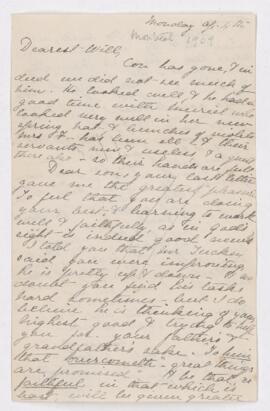 Monday
1909
Dearest Will,
Con has gone, & in
deed we did not see much of
him. He looked well & he had a
good time with Muriel who
looked very well in her new
spring hat & bunches of violets
Mrs has him ill & their
servants
there also - so their hands are full
Dear son, your last letter
gave me the greatest pleasure
To feel that you are doing
your best, & learning to work
well & faithfully, as in God's
sight is indeed good news
I told you that Mr
said you were improving
he is pretty up & down - I
doubt you find his tasks
hard sometimes - but I do
believe he is thinking of your
highest good & trying to help
you for your father's &
grandfather's sake. To him
that overcometh - great things
are promised & he that is
faithful in that which is
least will be given greater